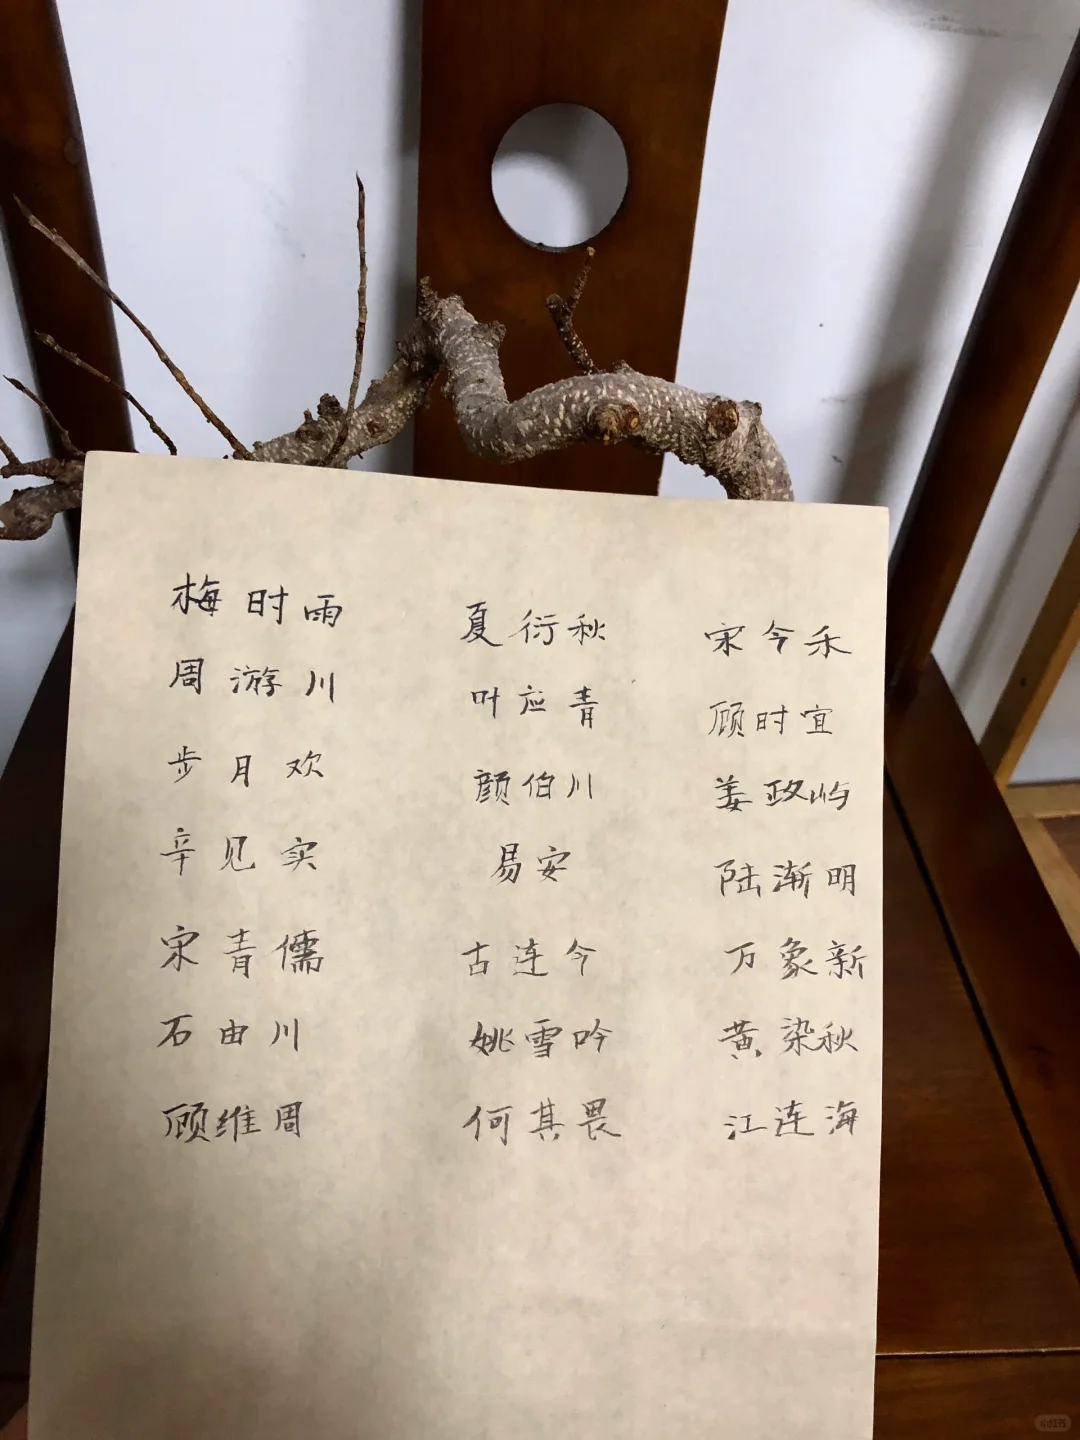 梅时雨
周游川
步月欢
辛见实
宋青儒
石由川
顾维周
夏衍秋
叶应青
颜伯川
易安
古连今
姚雪吟
何其畏
宋今禾
顾时宜
姜政屿
陆渐明
万象新
黄染秋
江连海
小红书